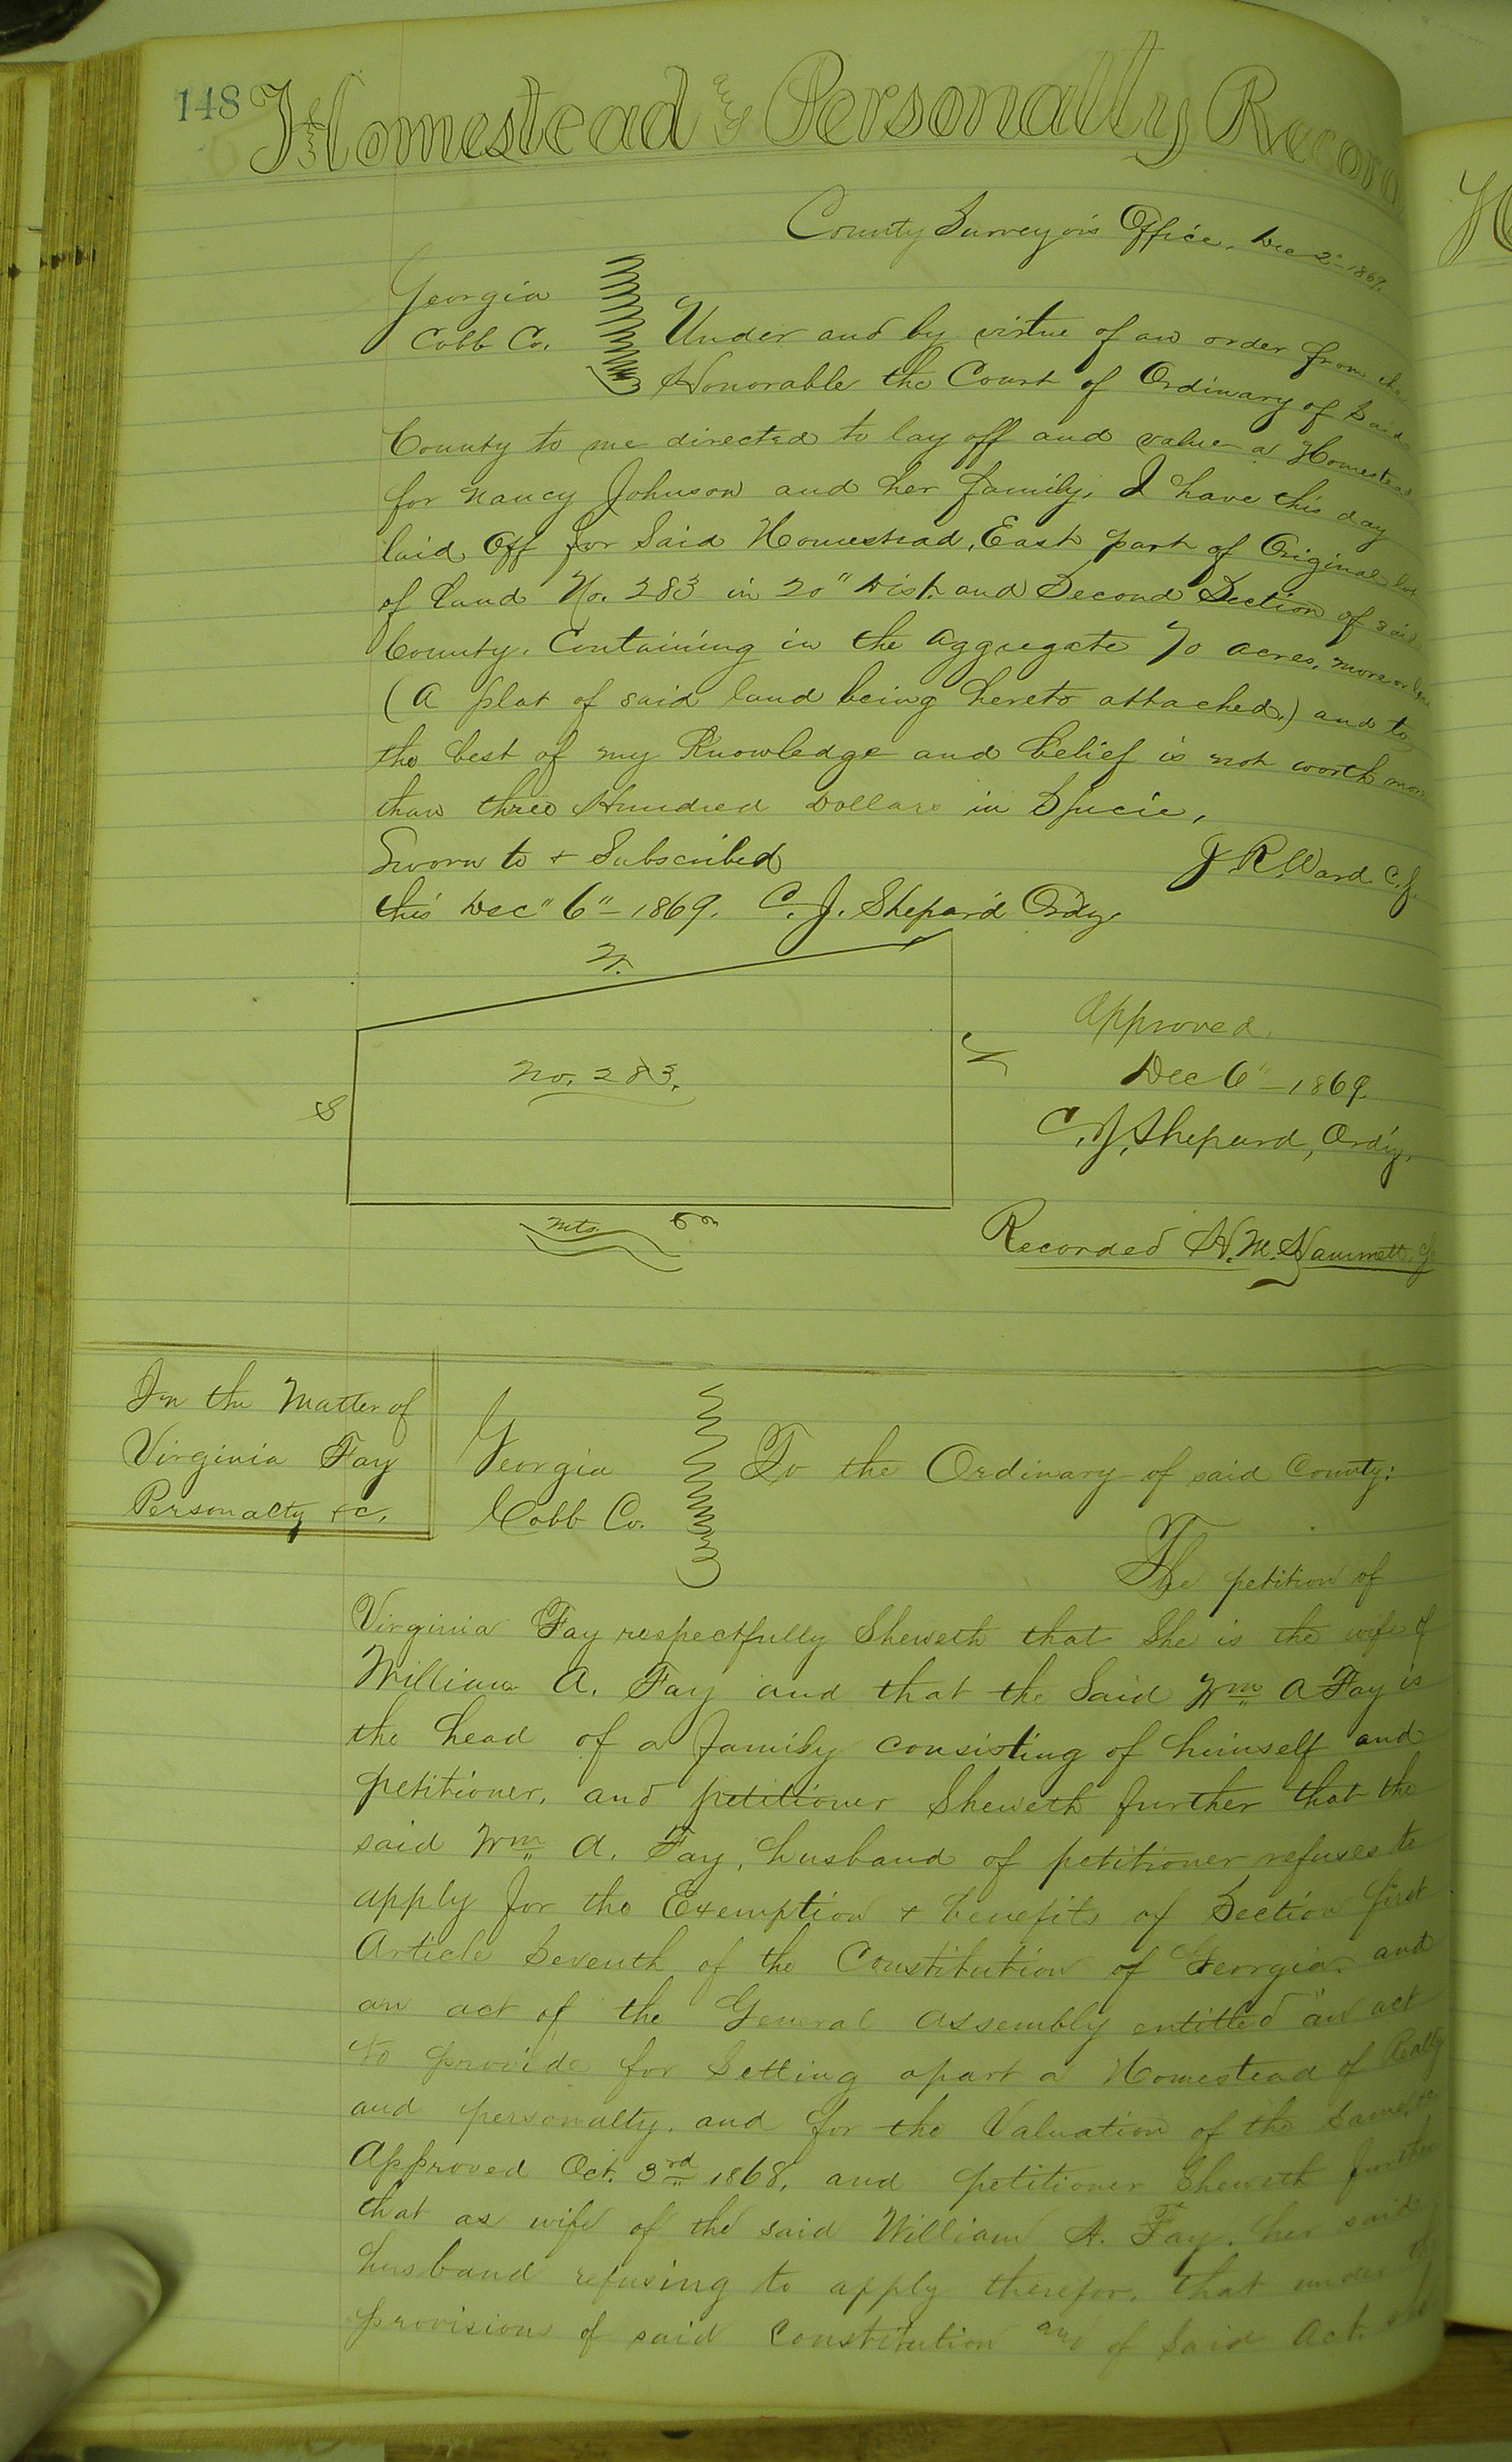 148 Homestead and Personalty Record
County Surveyor's Office, Dec 2"- 1869.
Georgia
Cobb Co.
Under and by virtue of an order from the
Honorable the Court of Ordinary of Said
County to me directed to lay off and value a Homestead
for Nancy Johnson and her family, I have this day
laid Off for Said Homestead, East part of Original lot
of Land No. 283 in 20" Dist. and Second Section of said
County. Containing in the aggregate 70 acres, more or less
(A plat of said land being hereto attached.) and to
the best of my Knowledge and belief is not worth more
than three Hundred Dollars in Specie,
Sworn to + Subscribed
J. R. Ward. C.S.
this Dec" 6"- 1869. C. J. Shepard Ordy.
N.
No. 283.
S
Approved.
Dec 6"- 1869.
C. J. Shepard, Ord'y.
Recorded H. M. Hammett,
In the Matter of
Virginia Fay
Personalty +c,
Georgia
Cobb Co.
To the Ordinary of said County:
The petition of
Virginia Fay respectfully Sheweth that She is the wife of
William A. Fay and that the Said Wm A Fay is
the head of a family consisting of himself and
petitioner, and petitioner Sheweth further that the
said Wm A. Fay, husband of petitioner refuses to
apply for the Exemption + benefits of Section first
Article Seventh of the Constitution of Georgia. and
an act of the General Assembly entitled "an act
to provide for Setting apart a Homestead of Realty
and personalty. and for the Valuation of the Same,
Approved Oct. 3rd 1868, and petitioner Sheweth further
that as wife of the said William A. Fay. her said
husband refusing to apply therefor, that under the
provisions of said Constitution and of Said Act. she